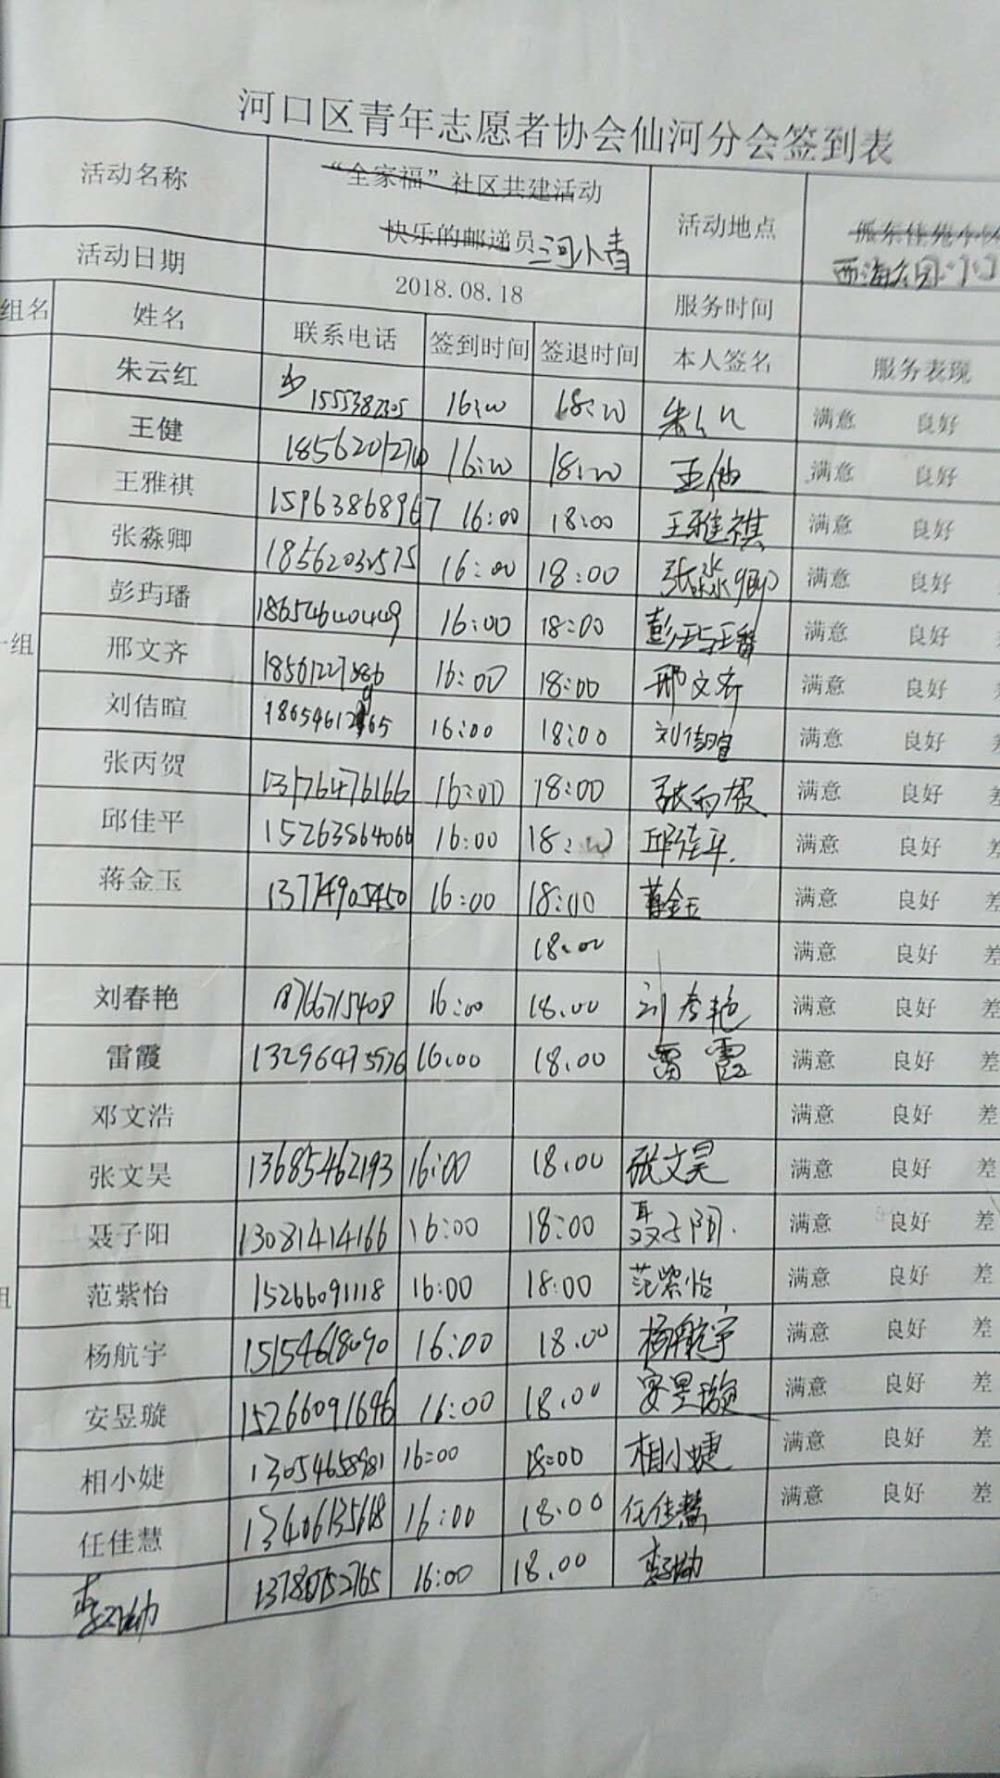 河口区青年志愿者协会仙河分会签到表
活动名称 “全家福”社区共建活动 快乐的邮递员 河小青 活动地点
活动日期 2018.08.18 服务时间
组名 姓名 联系电话 签到时间 签退时间 本人签名 服务表现
朱云红 16:00 18:00 满意 良好
王健 16:00 18:00 王健 满意 良好
王雅祺 15963868967 16:00 18:00 王雅祺 满意 良好
张淼卿 16:00 18:00 张淼卿 满意 良好
彭玙璠 18654640449 16:00 18:00 彭玙璠 满意 良好
一组
邢文齐 16:00 18:00 邢文齐 满意 良好
刘佶暄 16:00 18:00 刘佶暄 满意 良好
张丙贺 13176476166 16:00 18:00 张丙贺 满意 良好 差
邱佳平 15263864066 16:00 18:00 邱佳平. 满意 良好 差
蒋金玉 16:00 18:00 蒋金玉 满意 良好 差
18:00 满意 良好 差
刘春艳 18766715408 16:00 18.00 刘春艳 满意 良好 差
雷霞 13296475576 16.00 18.00 雷霞 满意 良好 差
邓文浩 满意 良好 差
张文昊 13685462193 16:00 18.00 张文昊 满意 良好 差
聂子阳 13081414166 16:00 18:00 聂子阳. 满意 良好 差
范紫怡 15266091118 16:00 18:00 范紫怡 满意 良好 差
组
杨航宇 15154618090 16:00 18.00 杨航宇 满意 良好 差
安昱璇 15266091646 16:00 18.00 安昱璇 满意 良好 差
相小婕 13054658981 16:00 18:00 相小婕 满意 良好 差
任佳慧 13406135618 16:00 18:00 任佳慧 满意 良好 差
16:00 18.00